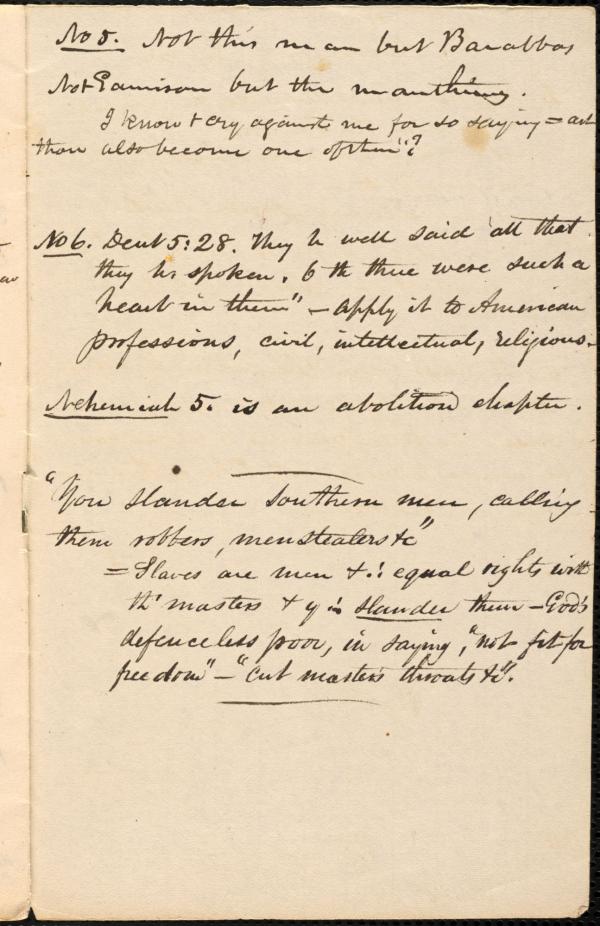 No 5. Not this man but Barabbas
Not Garrison but the manthing.
I know + cry against me for so saying = art
thou also become one of them"?
No 6. Deut 5:28. They h well said all that
they h spoken. O th there were such a
heart in them" - apply it to American
professions, civil, intellectual, religious.
Nehemiah 5. is an abolition chapter.
"You slander Southern men, calling
them robbers, menstealers &c"
= Slaves are men & ∴ equal rights with
th masters & y ∴ slander them - God's
defenceless poor, in saying, "not fit for
freedom" - "cut masters throats &c".